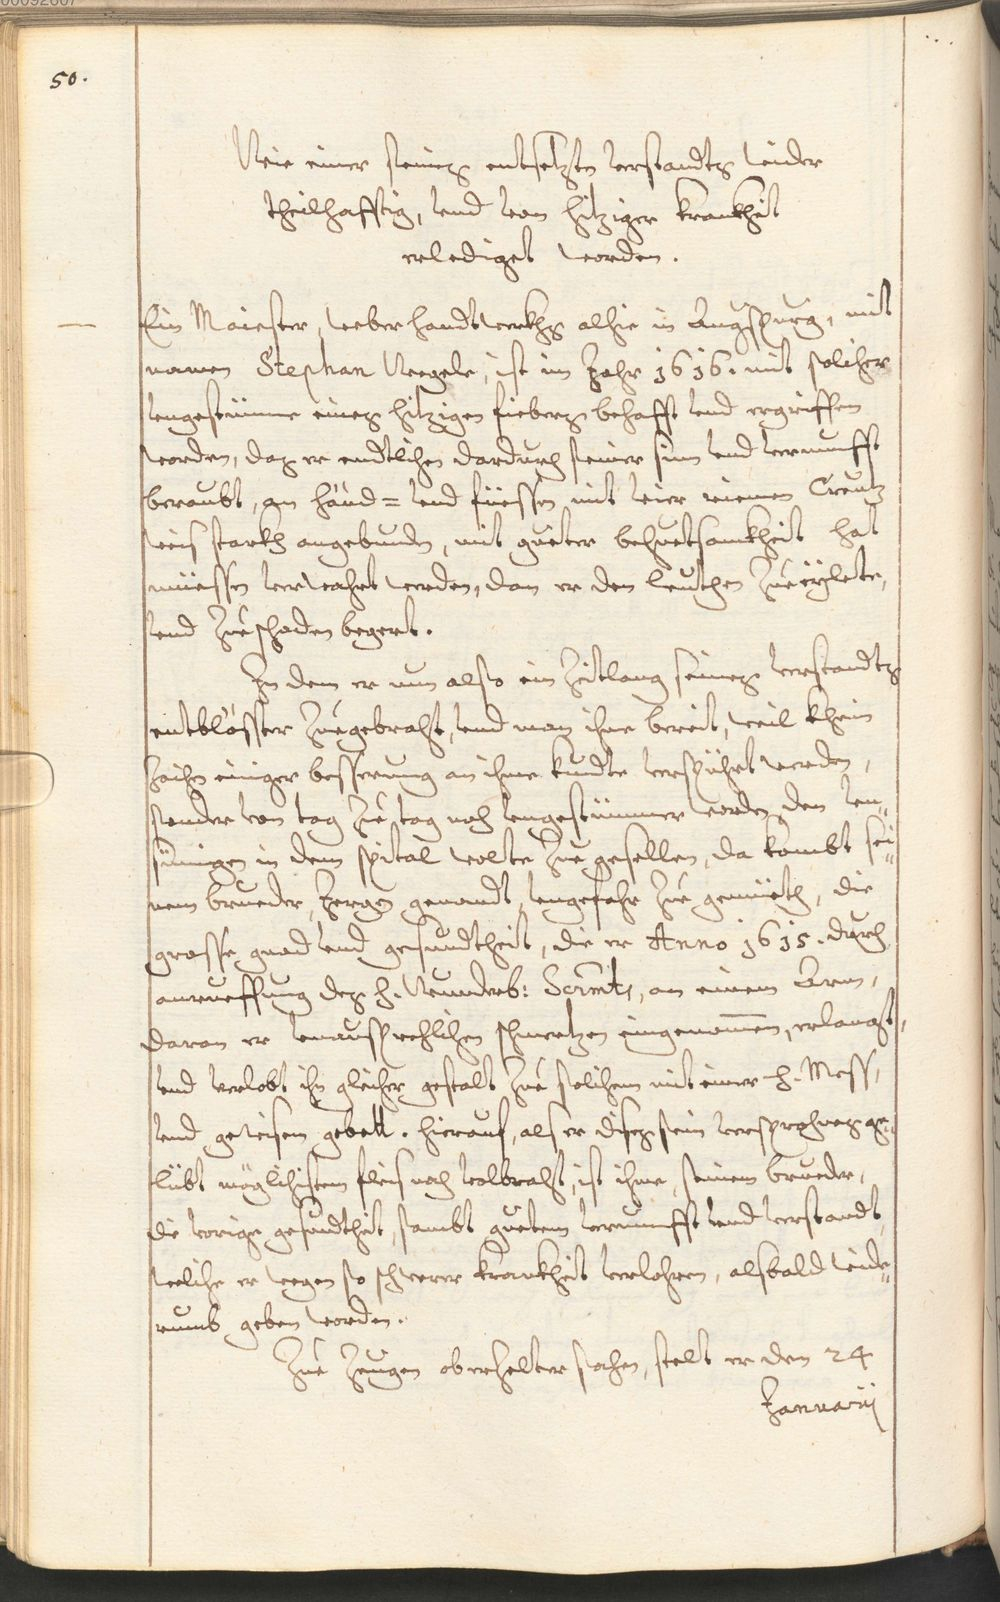 50.
Wie einer seines entsetzten verstandts wider
theilhafftig, vnd von hitziger kranckheit
erlediget worden.
Ein Maister, weber handtwerkhs alhie in Augspurg, mit
namen Stephan Negele, ist im Jahr 1616. mit solicher
vngestümme eines hitzigen fiebers behafft vnd ergriffen
worden, das er endtlichen dardurch seiner sinn vnd vernunfft
beraubt, an händ= vnd füessen mit vier riemen Creutz
weis starkh angebunden, mit gueter behuetsamkheit hat
müessen verwahrt werden, dan er den leuthen zue eylete,
vnd zue schaden begert.
In dem er nun also ein zeitlang seines verstandts
entblösster zuegebracht, vnd man ihne bereit, weil khein
zaichen einiger besserung an ihme kundte verspührt werden,
sonder von tag zue tag noch vngestümmer worden, den vn„
sinnigen in dem spital wolte zue gesellen, da kombt sei„
nem brueder, Jergen genandt, vngefahr zue gemüeth, die
grosse gnad vnd gesundtheit, die er Anno 1615. durch
anrueffung des H. Wunderb: Scrmts, an einem Arm,
daran er vnaussprechlichen schmertzen eingenommen, erlangt,
vnd verlobt ihn gleicher gestalt zue solichem mit einer H. Mess,
vnd gewisem gebett. Hierauf, als er dises sein versprochnes ge„
lübt möglichistem fleis nach volbracht, ist ihme, seinem brueder,
die vorige gesundtheit, sambt guetem vernunfft vnd verstandt,
weliche er wegen so schwerer kranckheit verlohren, alsbald wide„
rumb geben worden.
Zue Zeugen oberzelter sachen, stelt er den 24
Januarij